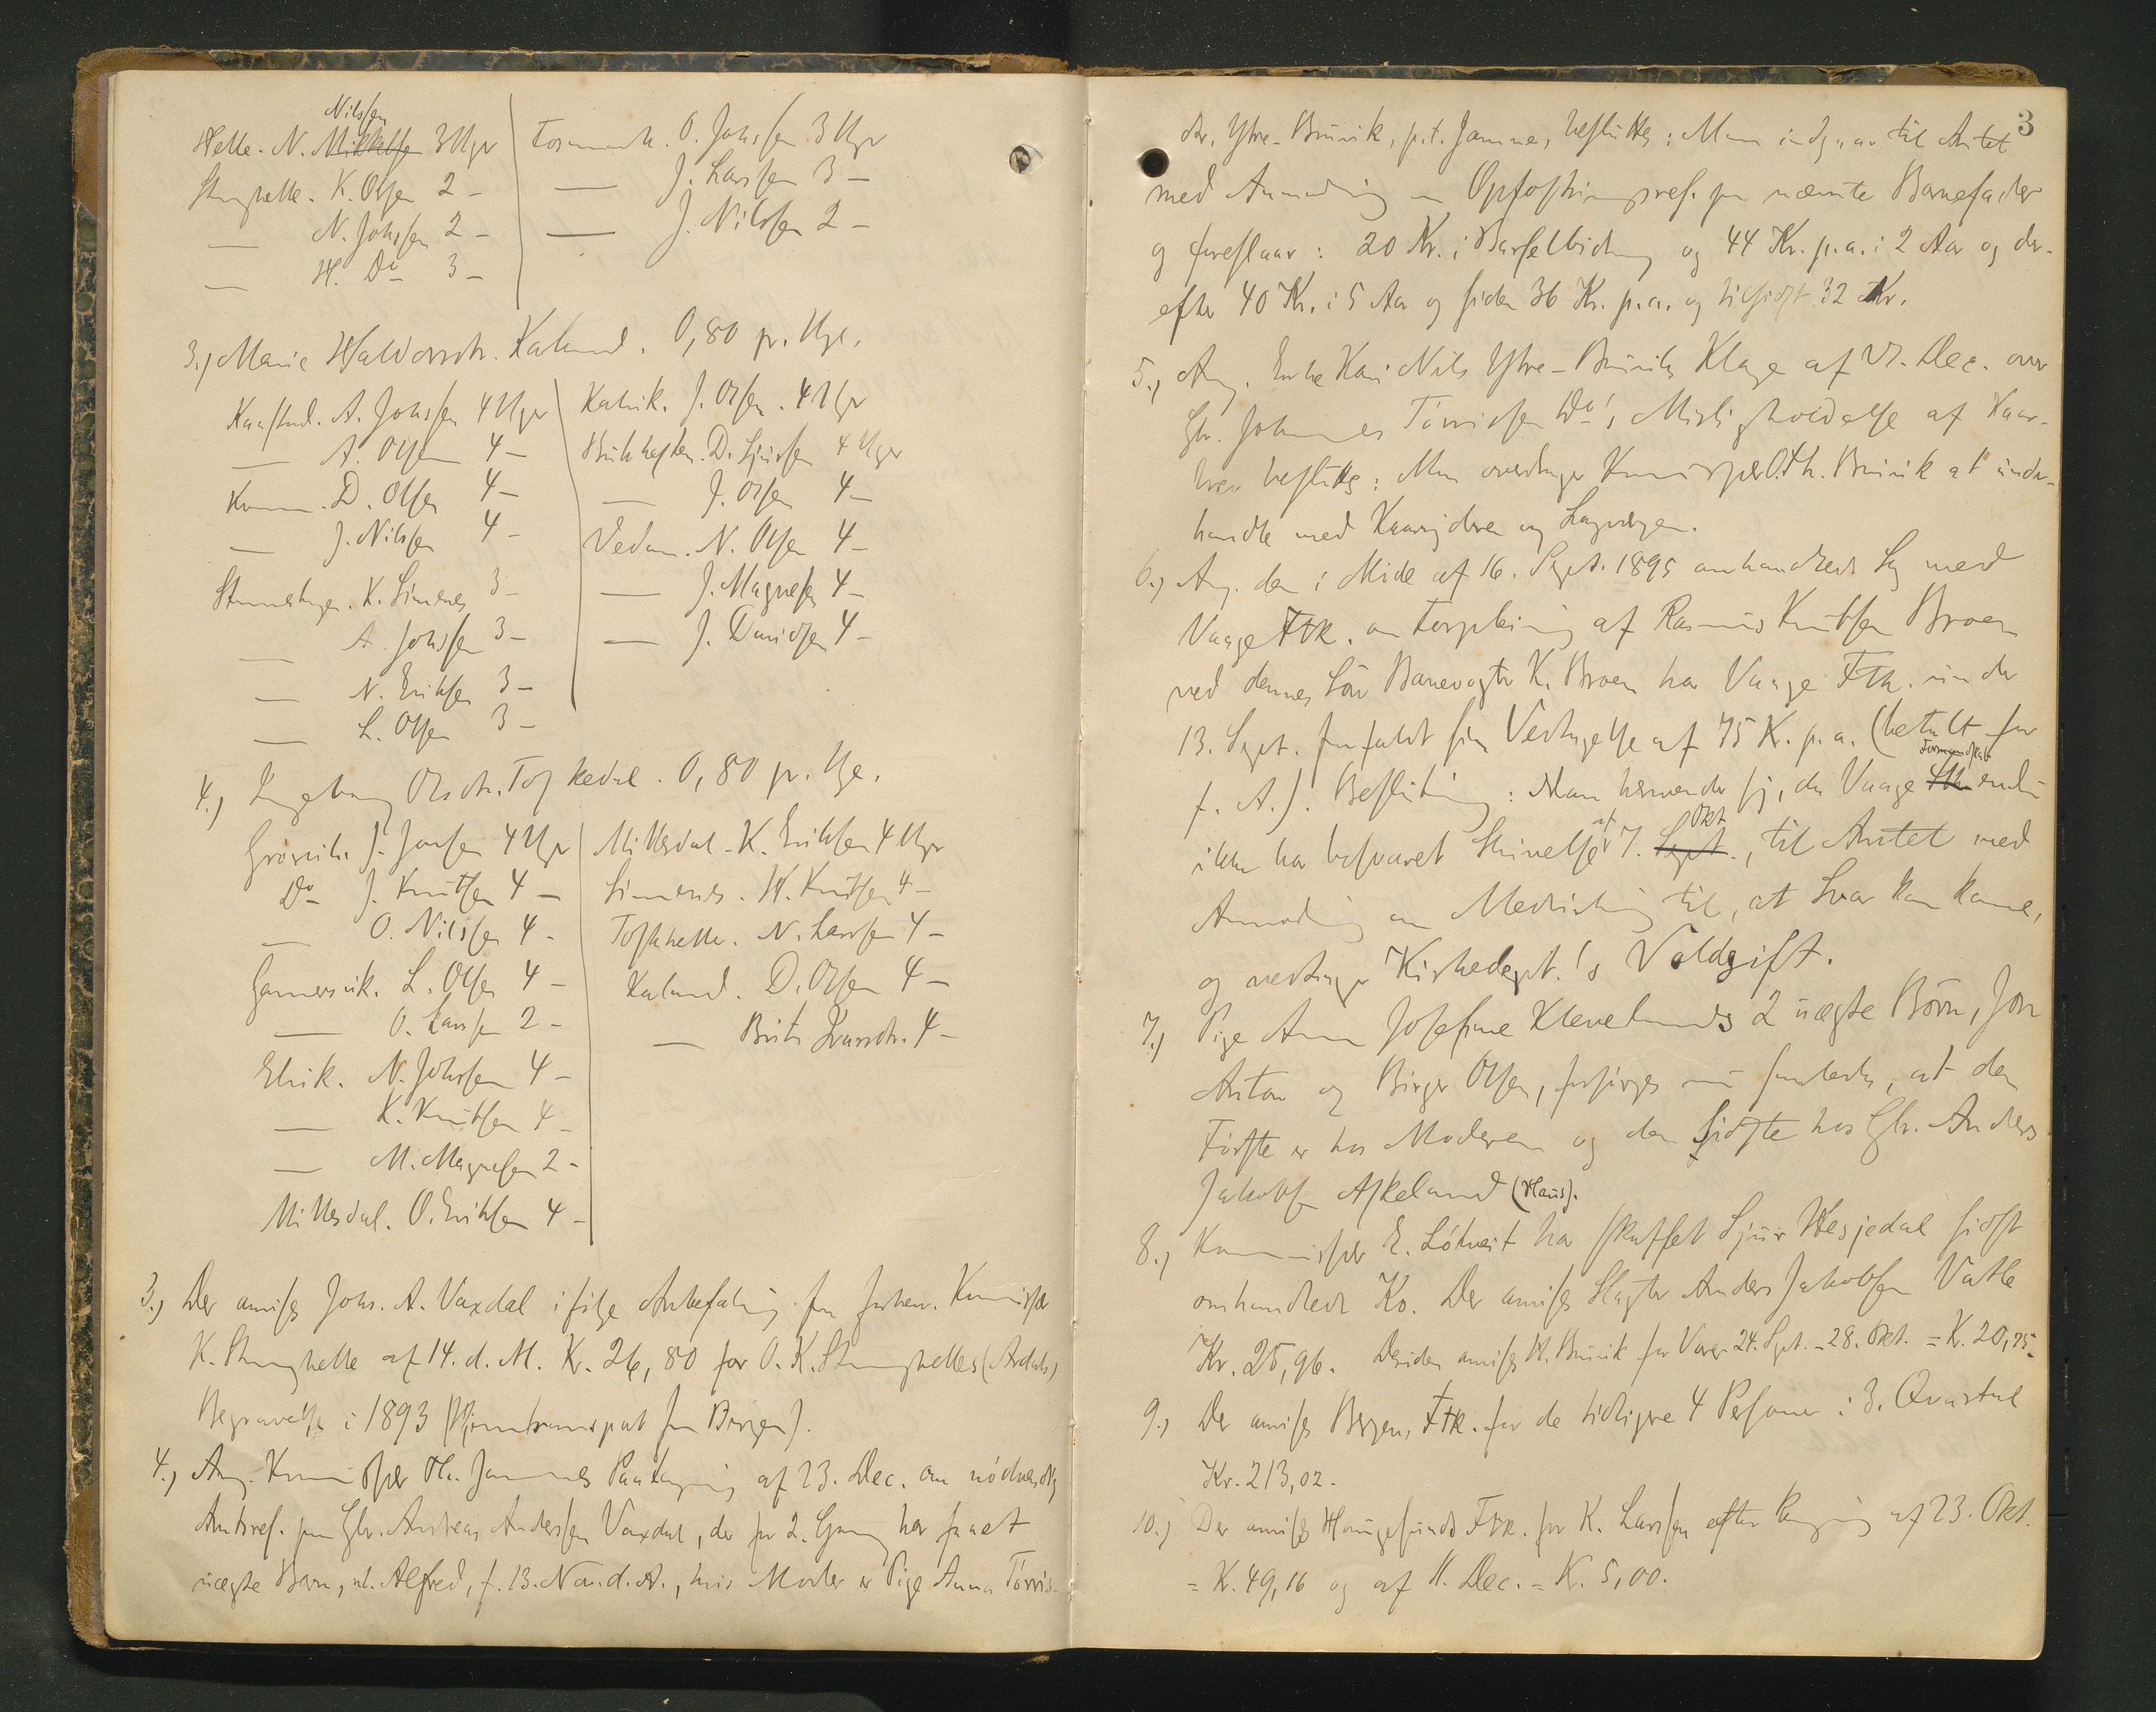 Nilssen
Helle. N. Mikkelsen 3 Uger
Stanghelle. K. Olsen 2 –
— N. Johssen 2 –
— H. Do 3 –
Fosmark. O. Johssen 3 Uger
— J. Larssen 3 –
— J. Nilssen 2 –
3.) Marie Haldorsdtr. Kaland. 0,80 pr. Uge.
A. Johssen 4 Uger
— A. Olsen 4 –
D. Olsen 4 –
— J. Nilssen 4 –
K. Simenes 3 –
— A. Johssen 3 –
— N. Eriksen 3 –
— L. Olsen 3 –
J. Olsen. 4 Uger
D. Sjursen 4 Uger
— J. Olsen 4 –
Vedaa. N. Olsen 4 –
— J. Magnesen 4 –
— J. Davidsen 4 –
4.) Ingeborg Olsdtr. Toskedal. 0,80 pr. Uge.
J. Jonsen 4 Uger
Do J. Knutsen 4 –
— O. Nilssen 4 –
Gammersvik. L. Olsen 4 –
— O. Larssen 2 –
Eknik. N. Johssen 4 –
— K. Knutsen 4 –
— M. Magnesen 2 –
Mittesdal. O. Eriksen 4 –
Mittesdal. K. Eriksen 4 Uger
Simenes. H. Knutsen 4 –
Toskhelle. N. Larssen 4 –
Kaland. D. Olsen 4 –
— Brita Ivarsdtr. 4 –
3.) Der anvises Johs. A. Vaxdal ifølge Anbefaling fra forhen. Kommissær
K. Stanghelle af 14. d. M. Kr. 26,80 for O. K. Stanghelles (Ardals)
Begravelse i 1893 (Hjemtransport fra Bergen).
4.) Ang. Kommissær Ol. Jamnes Paategning af 23. Dec. om nødvendig
Amtsres. for Gbr. Andreas Andersen Vaxdal, der for 2. Gang har faaet
uægte Barn, nl. Alfred, f. 13. Nov. d. A., hvis Moder er Pige Anna Tørris-
3
dtr. Ytre-Bruvik, p.t. Jamne, besluttes: Man indgaar til Amtet
med Anmodning om Opfostringsres. for nævnte Barnefader
og foreslaar: 20 Kr. i Barselbidrag og 44 Kr. p.a. i 2 Aar og der-
efter 40 Kr. i 5 Aar og siden 36 Kr. p.a. og tilsidst 32 Kr.
5.) Ang. Enke Kari Nils Ytre-Bruviks Klage af 21. Dec. over
Gbr. Johannes Tørrisen Do's Misligholdelse af Kaar-
brev besluttes: Man overdrager Kommissær O. Th. Bruvik at under-
handle med Kaaryderen og Lagvergen.
6.) Ang. den i Møde af 16. Sept. 1895 omhandlede Sag med
Vaage Ftk. om Forpleining af Rasmus Knutsen Broen
ved dennes Søn Banevogter K. Broen har Vaage Ftk. under
13. Sept. frafaldt sin Vedtagelse af 75 K. p.a. (betalt for
Formandskab
f. A.). Beslutning: Man henvender sig, da Vaage Ftk. endnu
af Okt
ikke har besvaret Skrivelse 7. Sept., til Amtet med
Anmodning om Medvirkning til, at Svar kan komme,
og vedtager Kirkedept.'s Voldgift.
7.) Pige Anna Josefine Klevelands 2 uægte Børn, Jon
Anton og Birger Olsen, forsørges nu saaledes, at den
Første er hos Moderen og den Sidste hos Gbr. Anders
Jakobsen Askeland (Haus).
8.) Kommissær E. Løtveit har skaffet Sjur Hesjedal sidst
omhandlede Ko. Der anvises Slagter Anders Jakobsen Vatle
Kr. 25,96. Desuden anvises H. Bruvik for Varer 24. Sept. – 28. Okt. = K. 20,75.
9.) Der anvises Bergens Ftk. for de tidligere 4 Personer i 3. Qvartal
Kr. 213,02.
10.) Der anvises Haugesunds Ftk. for K. Larssen efter Regning af 23. Okt.
= K. 49,16 og af 11. Dec. = K. 5,00.